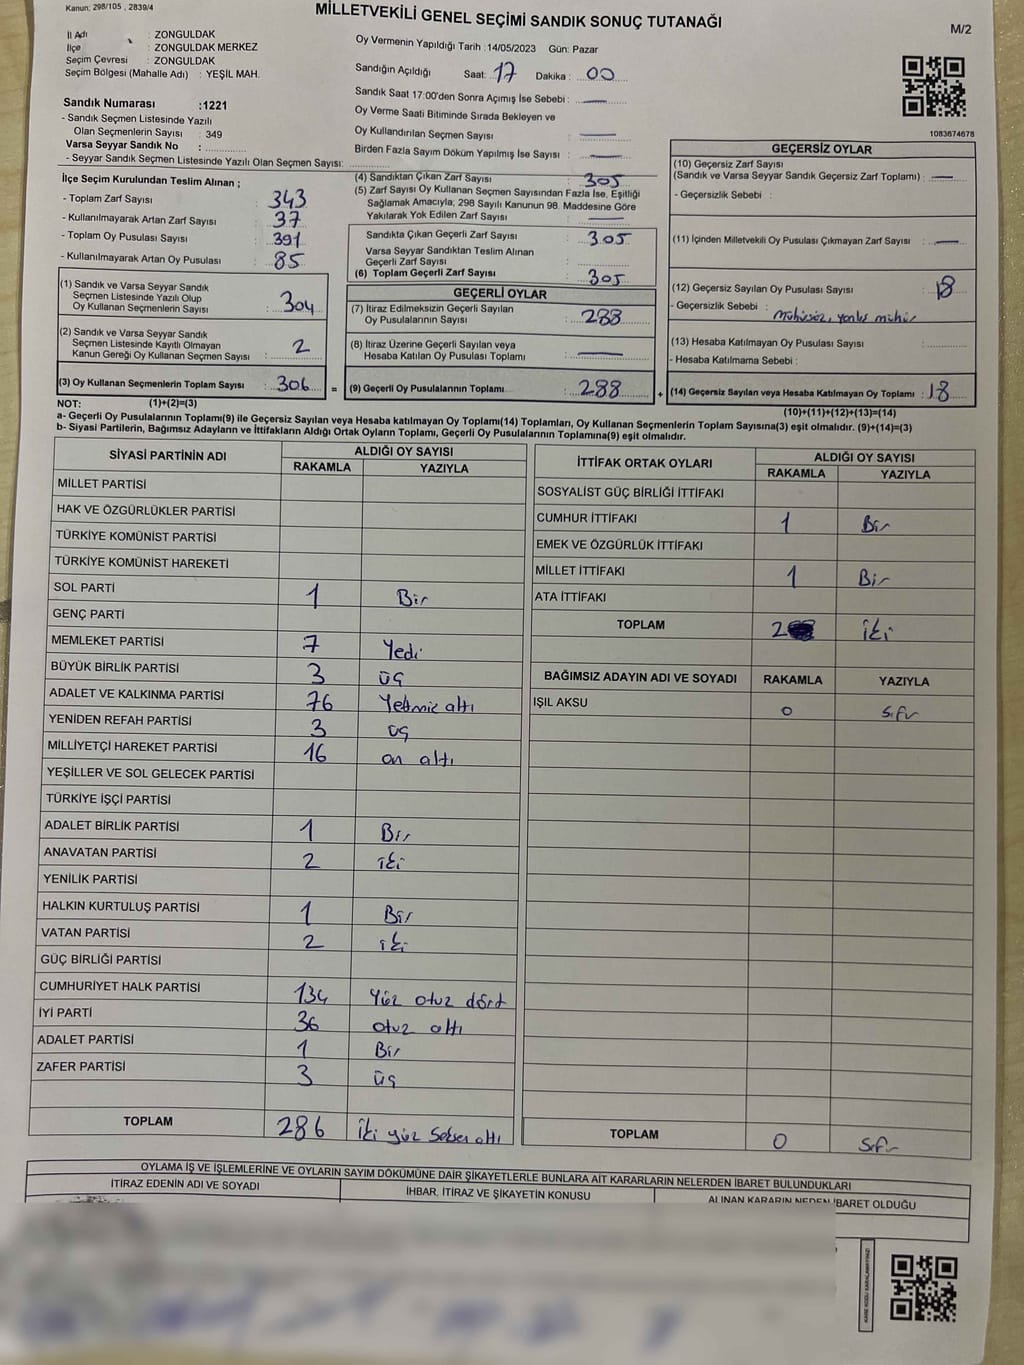 Kanun: 298/105 , 2839/4
MİLLETVEKİLİ GENEL SEÇİMİ SANDIK SONUÇ TUTANAĞI
M/2
İl Adı : ZONGULDAK
İlçe : ZONGULDAK MERKEZ
Seçim Çevresi : ZONGULDAK
Seçim Bölgesi (Mahalle Adı) : YEŞİL MAH.
Sandık Numarası :1221
- Sandık Seçmen Listesinde Yazılı
Olan Seçmenlerin Sayısı : 349
Varsa Seyyar Sandık No :
- Seyyar Sandık Seçmen Listesinde Yazılı Olan Seçmen Sayısı:
Oy Vermenin Yapıldığı Tarih :14/05/2023 Gün: Pazar
Sandığın Açıldığı Saat: 17 Dakika : 00
Sandık Saat 17:00'den Sonra Açımış İse Sebebi : —
Oy Verme Saati Bitiminde Sırada Bekleyen ve
Oy Kullandırılan Seçmen Sayısı : —
Birden Fazla Sayım Döküm Yapılmış İse Sayısı : —
1083674678
İlçe Seçim Kurulundan Teslim Alınan ;
- Toplam Zarf Sayısı : 343
- Kullanılmayarak Artan Zarf Sayısı : 37
- Toplam Oy Pusulası Sayısı : 391
- Kullanılmayarak Artan Oy Pusulası : 85
(1) Sandık ve Varsa Seyyar Sandık
Seçmen Listesinde Yazılı Olup
Oy Kullanan Seçmenlerin Sayısı : 304
(2) Sandık ve Varsa Seyyar Sandık
Seçmen Listesinde Kayıtlı Olmayan
Kanun Gereği Oy Kullanan Seçmen Sayısı : 2
(3) Oy Kullanan Seçmenlerin Toplam Sayısı : 306 =
(4) Sandıktan Çıkan Zarf Sayısı : 305
(5) Zarf Sayısı Oy Kullanan Seçmen Sayısından Fazla İse, Eşitliği
Sağlamak Amacıyla; 298 Sayılı Kanunun 98. Maddesine Göre
Yakılarak Yok Edilen Zarf Sayısı : —
Sandıkta Çıkan Geçerli Zarf Sayısı : 305
Varsa Seyyar Sandıktan Teslim Alınan
Geçerli Zarf Sayısı :
(6) Toplam Geçerli Zarf Sayısı : 305
GEÇERLİ OYLAR
(7) İtiraz Edilmeksizin Geçerli Sayılan
Oy Pusulalarının Sayısı : 288
(8) İtiraz Üzerine Geçerli Sayılan veya
Hesaba Katılan Oy Pusulası Toplamı : —
(9) Geçerli Oy Pusulalarının Toplamı : 288 +
GEÇERSİZ OYLAR
(10) Geçersiz Zarf Sayısı
(Sandık ve Varsa Seyyar Sandık Geçersiz Zarf Toplamı) : —
- Geçersizlik Sebebi :
(11) İçinden Milletvekili Oy Pusulası Çıkmayan Zarf Sayısı : —
(12) Geçersiz Sayılan Oy Pusulası Sayısı : 18
- Geçersizlik Sebebi : Mühürsüz, yanlış mühür
(13) Hesaba Katılmayan Oy Pusulası Sayısı :
- Hesaba Katılmama Sebebi :
(14) Geçersiz Sayılan veya Hesaba Katılmayan Oy Toplamı : 18
NOT: (1)+(2)=(3)
(10)+(11)+(12)+(13)=(14)
a- Geçerli Oy Pusulalarının Toplamı(9) ile Geçersiz Sayılan veya Hesaba katılmayan Oy Toplamı(14) Toplamları, Oy Kullanan Seçmenlerin Toplam Sayısına(3) eşit olmalıdır. (9)+(14)=(3)
b- Siyasi Partilerin, Bağımsız Adayların ve İttifakların Aldığı Ortak Oyların Toplamı, Geçerli Oy Pusulalarının Toplamına(9) eşit olmalıdır.
SİYASİ PARTİNİN ADI ALDIĞI OY SAYISI
RAKAMLA YAZIYLA
MİLLET PARTİSİ
HAK VE ÖZGÜRLÜKLER PARTİSİ
TÜRKİYE KOMÜNİST PARTİSİ
TÜRKİYE KOMÜNİST HAREKETİ
SOL PARTİ 1 Bir
GENÇ PARTİ
MEMLEKET PARTİSİ 7 Yedi
BÜYÜK BİRLİK PARTİSİ 3 üç
ADALET VE KALKINMA PARTİSİ 76 Yetmiş altı
YENİDEN REFAH PARTİSİ 3 üç
MİLLİYETÇİ HAREKET PARTİSİ 16 on altı
YEŞİLLER VE SOL GELECEK PARTİSİ
TÜRKİYE İŞÇİ PARTİSİ
ADALET BİRLİK PARTİSİ 1 Bir
ANAVATAN PARTİSİ 2 iki
YENİLİK PARTİSİ
HALKIN KURTULUŞ PARTİSİ 1 Bir
VATAN PARTİSİ 2 iki
GÜÇ BİRLİĞİ PARTİSİ
CUMHURİYET HALK PARTİSİ 134 Yüz otuz dört
İYİ PARTİ 36 otuz altı
ADALET PARTİSİ 1 Bir
ZAFER PARTİSİ 3 üç
TOPLAM 286 İki yüz seksen altı
İTTİFAK ORTAK OYLARI ALDIĞI OY SAYISI
RAKAMLA YAZIYLA
SOSYALİST GÜÇ BİRLİĞİ İTTİFAKI
CUMHUR İTTİFAKI 1 Bir
EMEK VE ÖZGÜRLÜK İTTİFAKI
MİLLET İTTİFAKI 1 Bir
ATA İTTİFAKI
TOPLAM 2 iki
BAĞIMSIZ ADAYIN ADI VE SOYADI RAKAMLA YAZIYLA
IŞIL AKSU 0 sıfır
TOPLAM 0 sıfır
OYLAMA İŞ VE İŞLEMLERİNE VE OYLARIN SAYIM DÖKÜMÜNE DAİR ŞİKAYETLERLE BUNLARA AİT KARARLARIN NELERDEN İBARET BULUNDUKLARI
İTİRAZ EDENİN ADI VE SOYADI İHBAR, İTİRAZ VE ŞİKAYETİN KONUSU ALINAN KARARIN NEDEN İBARET OLDUĞU